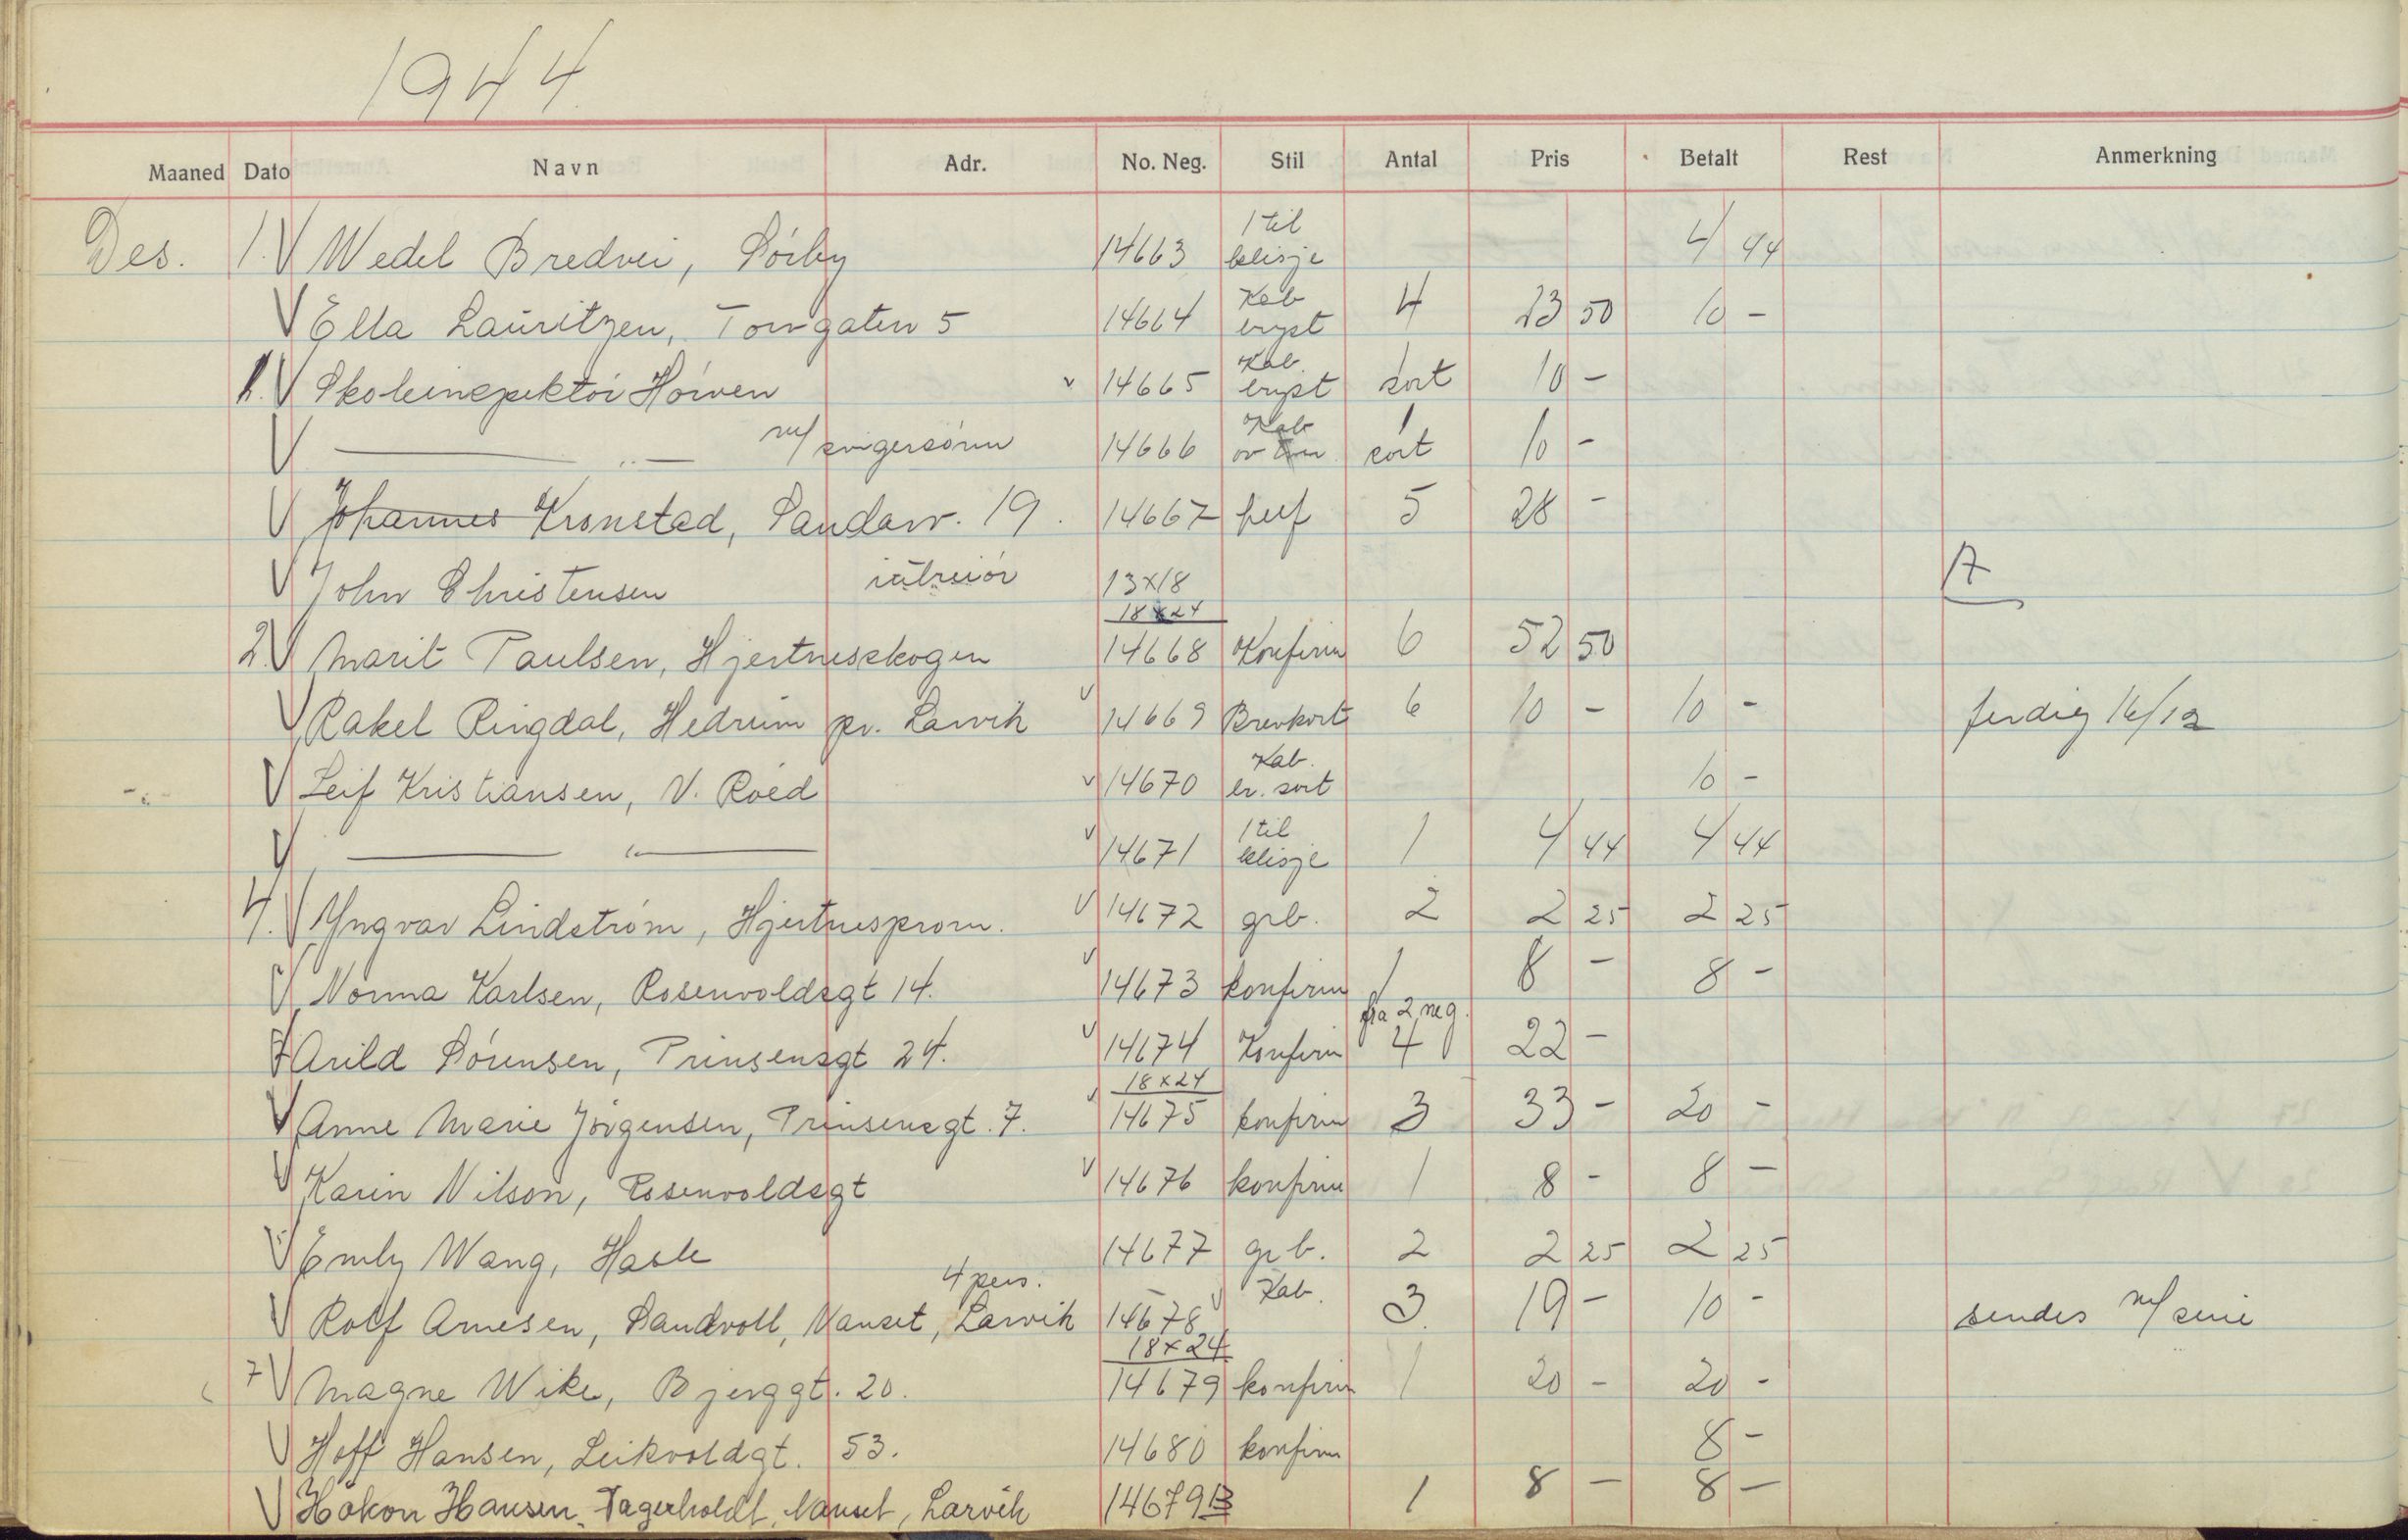 1944.
Maaned Dato Navn Adr. No. Neg. Stil Antal Pris Betalt Rest Anmerkning
Des. 1. V Wedel Bredvei, Sörby 14663 1 til klisje 4 44
V Ella Lauritzen, Torvgaten 5 14664 Kab bryst 4 23 50 10 -
1. V Skoleinspektör Hörven v 14665 Kab. bryst sort 10 -
V — " — m/ svigersönn 14666 Kab sort 1 10 -
V Johannes Kronstad, Sandarv. 19. 14667 perf 5 28 -
V John Christensen 13x18
2. V Marit Paulsen, Hjertnesskogen 18x24 14668 Konfirm 6 52 50
V Rakel Ringdal, Hedrum pr. Larvik v 14669 Brevkort 6 10 - 10 - ferdig 16/12
-"- V Leif Kristiansen, V. Röed v 14670 Kab. br. sort 10 -
V — " — v 14671 1 til klisje 1 4 44 4 44
4. V Yngvar Lindström, Hjertnesprom. v 14672 grb. 2 2 25 2 25
V Norma Karlsen, Rosenvoldsgt 14. v 14673 konfirm 1 8 - 8 -
V Arild Sörensen, Prinsensgt 24. v 14674 Konfirm fra 2 neg. 4 22 -
V Anne Marie Jörgensen, Prinsensgt. 7. v 18x24 14675 konfirm 3 33 - 20 -
V Karin Nilson, Rosenvoldsgt v 14676 konfirm 1 8 - 8 -
V Emly Wang, Hasle 14677 grb. 2 2 25 2 25
V Rolf Arnesen, Sandvoll, Nanset, Larvik 4 pers. 14678 v Kab. 3. 19 - 10 - sendes m/ serie
7 V Magne Wike, Bjerggt. 20. 18x24 14679 konfirm 1 20 - 20 -
V Hoff Hansen, Leikvoldgt. 53. 14680 konfirm 8 -
V Håkon Hansen, Fagerholdt, Nanset, Larvik 14679B 1 8 - 8 -